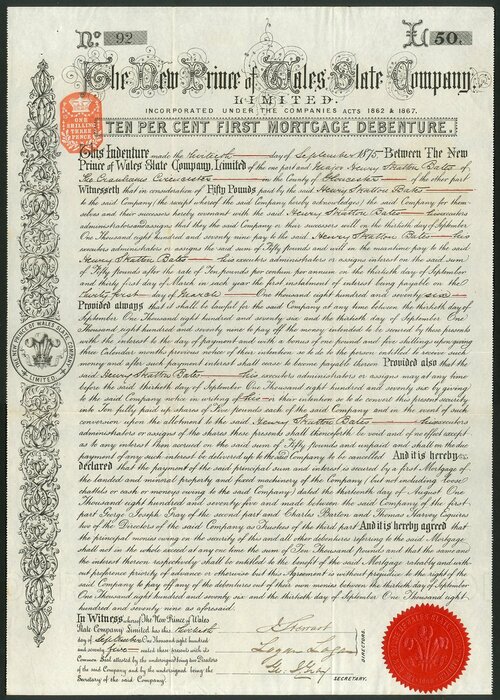 No. 92
£ 50.
The New Prince of Wales Slate Company.
LIMITED.
INCORPORATED UNDER THE COMPANIES ACTS 1862 & 1867.
ONE SHILLING THREE PENCE
TEN PER CENT FIRST MORTGAGE DEBENTURE.
This Indenture made the thirtieth day of September 1875. Between The New
Prince of Wales Slate Company, Limited of the one part and Major Henry Stratton Bates of
The in the County of of the other part
Witnesseth that in consideration of Fifty Pounds paid by the said Henry Stratton Bates
to the said Company (the receipt whereof the said Company hereby acknowledges) the said Company for them-
selves and their successors hereby covenant with the said Henry Stratton Bates his executors
administrators and assigns that they the said Company or their successors will on the thirtieth day of September
One Thousand eight hundred and seventy nine pay to the said Henry Stratton Bates his
executors administrators or assigns the said sum of Fifty pounds and will in the meantime pay to the said
Henry Stratton Bates his executors administrators or assigns interest on the said sum
of Fifty pounds after the rate of Ten pounds per centum per annum on the thirtieth day of September
and thirty first day of March in each year the first instalment of interest being payable on the
thirty first day of March One thousand eight hundred and seventy six
Provided always that it shall be lawful for the said Company at any time between the thirtieth day of
September One Thousand eight hundred and seventy six and the thirtieth day of September One
Thousand eight hundred and seventy nine to pay off the money intended to be secured by these presents
with the interest to the day of payment and with a bonus of one pound and five shillings upon giving
three Calendar months previous notice of their intention so to do to the person entitled to receive such
money and after such payment interest shall cease to become payable thereon Provided also that the
said Henry Stratton Bates his executors administrators or assigns may at any time
before the said thirtieth day of September One Thousand eight hundred and seventy six by giving
to the said Company notice in writing of his intention so to do convert this present security
into Ten fully paid up shares of Five pounds each of the said Company and in the event of such
conversion upon the allotment to the said Henry Stratton Bates his executors
administrators or assigns of the shares these presents shall thenceforth be void and of no effect except
as to any interest then accrued on the said sum of Fifty pounds and unpaid and shall on the due
payment of any such interest be delivered up to the said Company to be cancelled And it is hereby
declared that the payment of the said principal sum and interest is secured by a first Mortgage of
the landed and mineral property and fixed machinery of the Company (but not including loose
chattels or cash or moneys owing to the said Company) dated the thirteenth day of August One
Thousand eight hundred and seventy five and made between the said Company of the first
part George Joseph Gray of the second part and Charles Barton and Thomas Harvey Esquires
two of the Directors of the said Company as Trustees of the third part And it is hereby agreed that
the principal monies owing on the security of this and all other debentures referring to the said Mortgage
shall not in the whole exceed at any one time the sum of Ten Thousand pounds and that the same and
the interest thereon respectively shall be entitled to the benefit of the said Mortgage rateably and with-
out preference priority of advance or otherwise but this Agreement is without prejudice to the right of the
said Company to pay off any of the debentures out of their own monies between the thirtieth day of September
One Thousand eight hundred and seventy six and the thirtieth day of September One Thousand eight
hundred and seventy nine as aforesaid.
In Witness whereof The New Prince of Wales
Slate Company Limited has this thirtieth
day of September One Thousand eight hundred
and seventy five sealed these presents with its
Common Seal attested by the undersigned being two Directors
of the said Company and by the undersigned being the
Secretary of the said Company.
Stewart
DIRECTORS.
SECRETARY.
NEW PRINCE OF WALES SLATE COMPANY
LIMITED